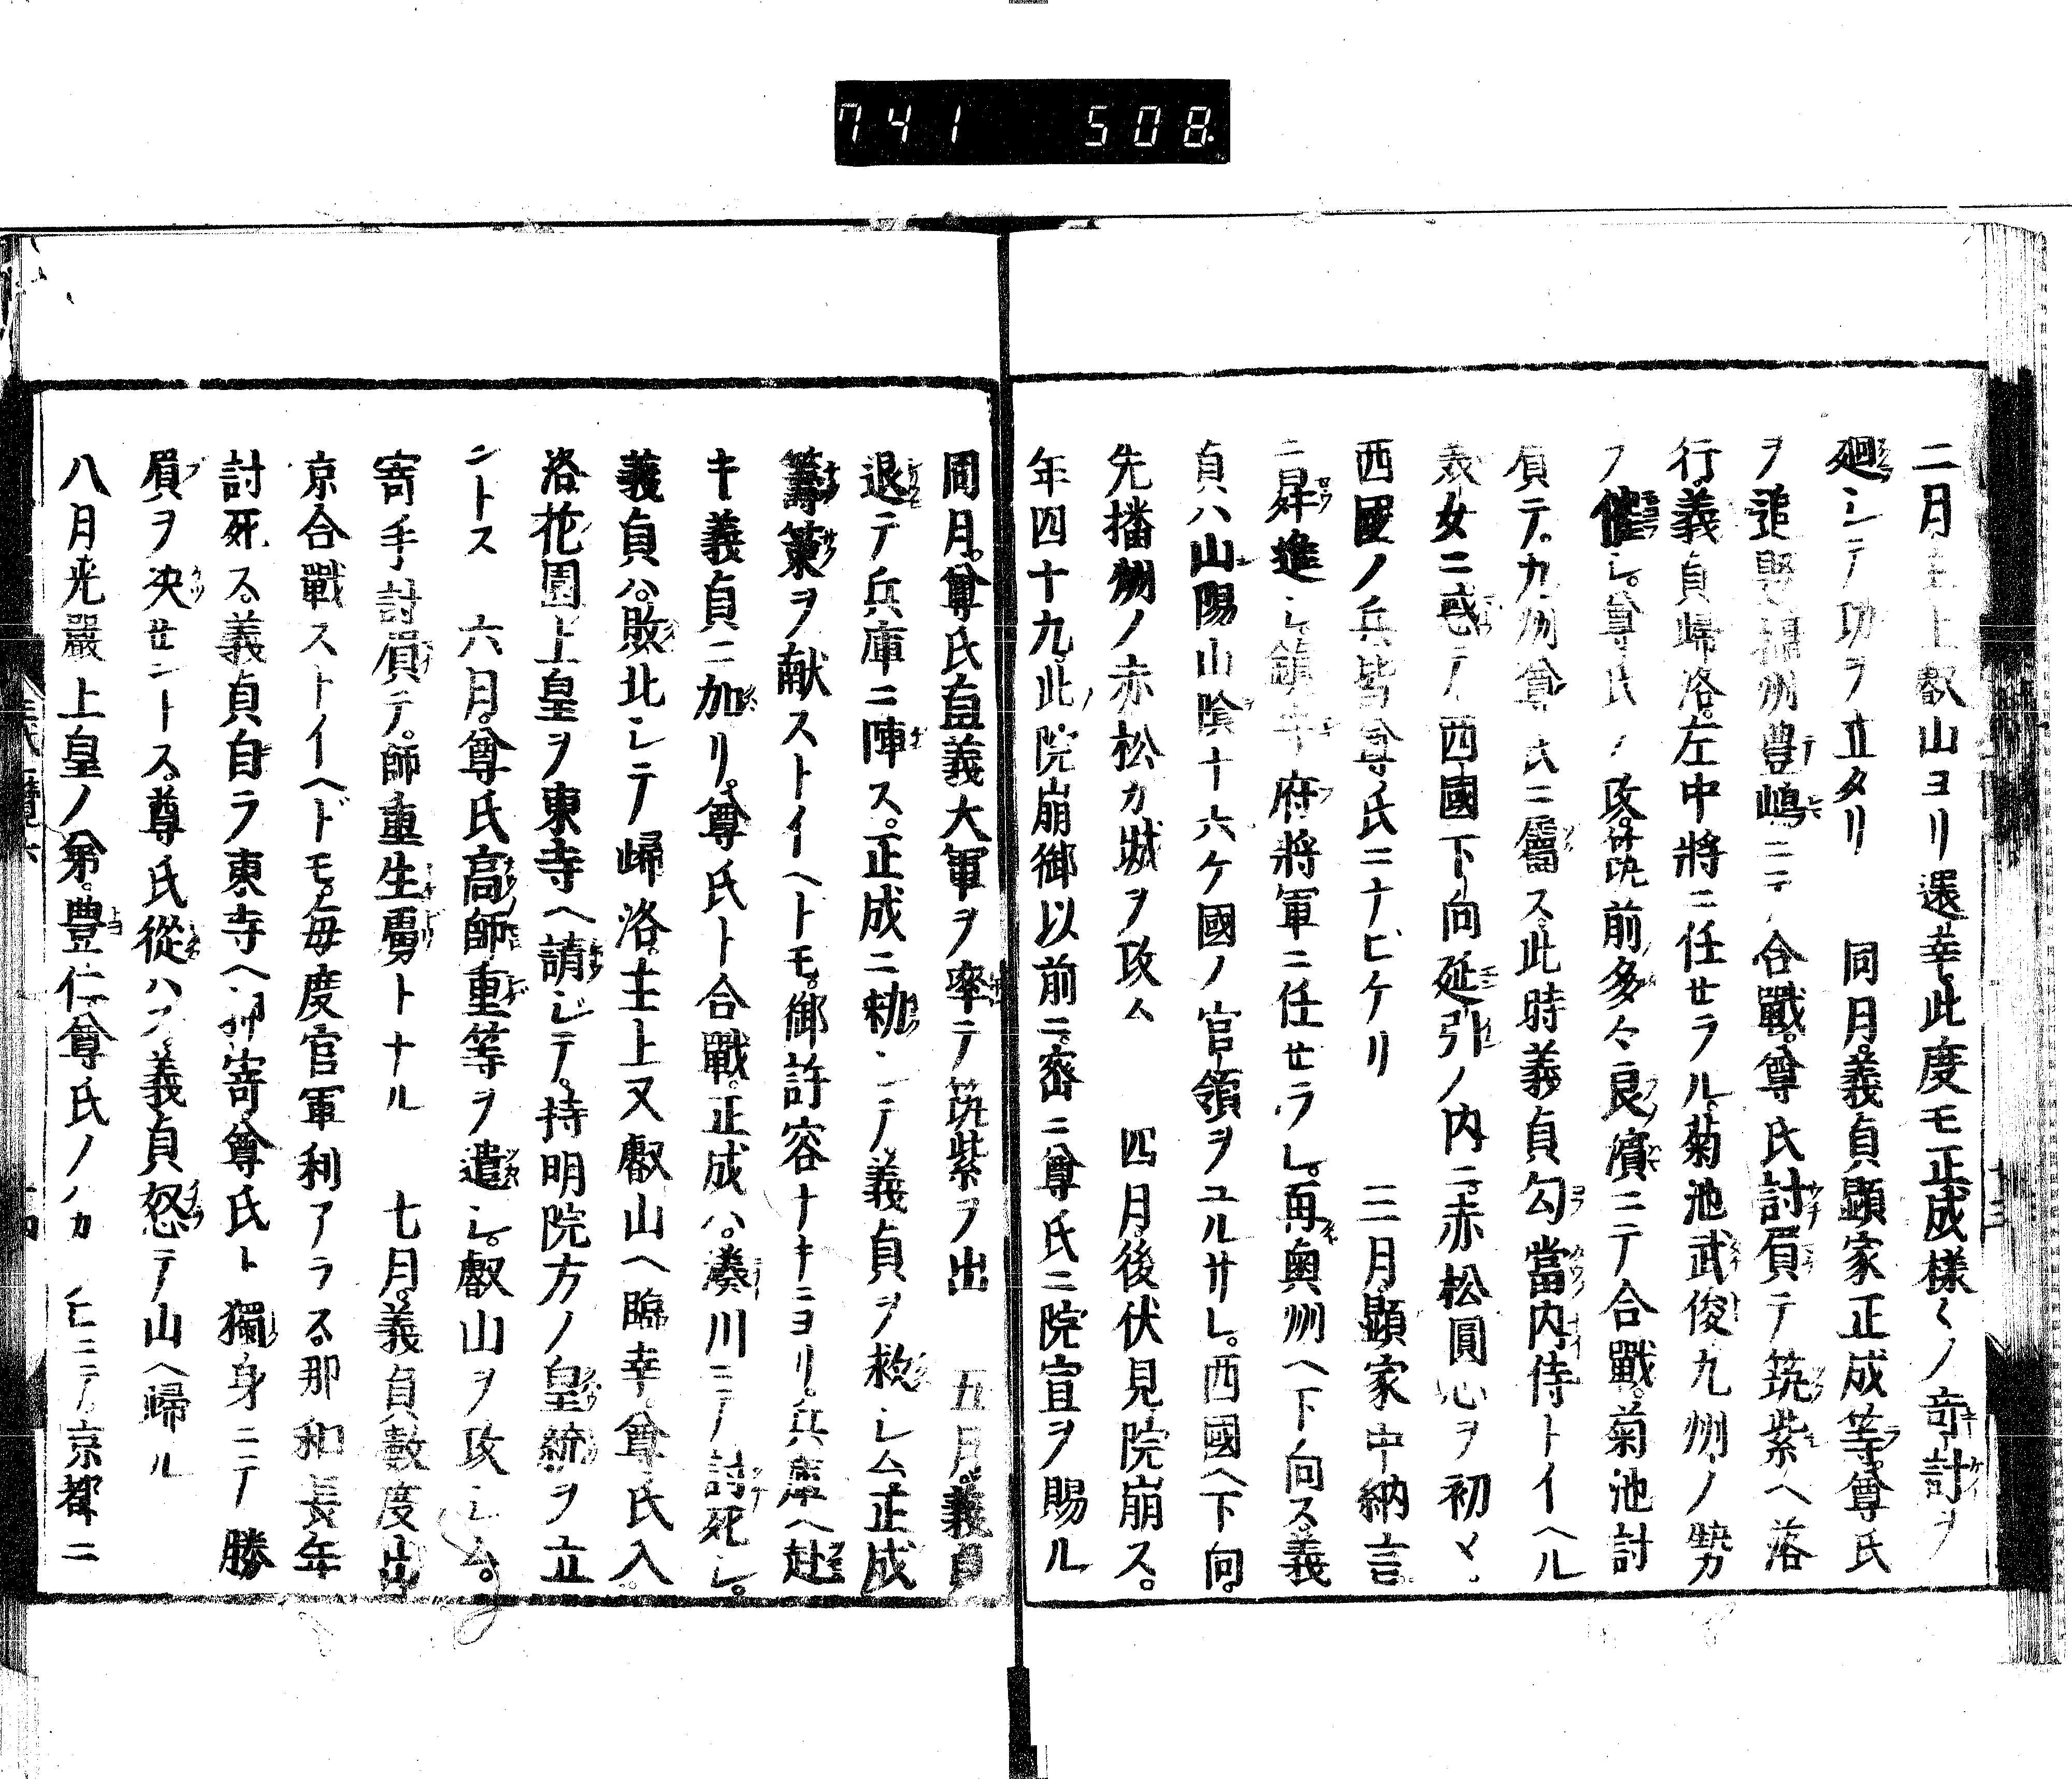 741 508
二月主上叡山ヨリ還幸此度モ正成樣〱ノ奇計ヲ
廻シテ功ヲ立タリ 同月義貞顯家正成等尊氏
ヲ追懸攝州豊嶋ニテ合戰尊氏討負テ筑紫ヘ落
行義貞歸洛左中將ニ任セラル菊池武俊九州ノ勢
ヲ催シ尊氏ヲ攻筑前多々良濱ニテ合戰菊池討
負テ九州尊氏ニ屬ス此時義貞勾當内侍トイヘル
美女ニ惑テ西國下向延引ノ内ニ赤松圓心ヲ初メ
西國ノ兵皆尊氏ニナビケリ 三月顯家中納言
ニ昇進シ鎮守府將軍ニ任セラレ再奥州ヘ下向ス義
貞ハ山陽山陰十六ケ國ノ官領ヲユルサレ西國ヘ下向
先播州ノ赤松カ城ヲ攻ム 四月後伏見院崩ス
年四十九此院崩御以前ニ密ニ尊氏ニ院宣ヲ賜ル
同月尊氏直義大軍ヲ率テ筑紫ヲ出 五月義貞
退テ兵庫ニ陣ス正成ニ勅シテ義貞ヲ救シム正成
籌策ヲ献ストイヘトモ御許容ナキニヨリ兵庫ヘ赴
キ義貞ニ加リ尊氏ト合戰正成ハ湊川ニテ討死シ
義貞ハ敗北シテ歸洛主上又叡山ヘ臨幸尊氏入
洛花園上皇ヲ東寺ヘ請シテ持明院方ノ皇統ヲ立
ントス 六月尊氏高師重等ヲ遣シ叡山ヲ攻シム
寄手討負テ師重生虜トナル 七月義貞數度出
京合戰ストイヘドモ毎度官軍利アラス那和長年
討死ス義貞自ラ東寺ヘ押寄尊氏ト獨身ニテ勝
負ヲ决セントス尊氏從ハス義貞怒テ山ヘ歸ル
八月光嚴上皇ノ弟豊仁尊氏ノハカラヒニテ京都ニ